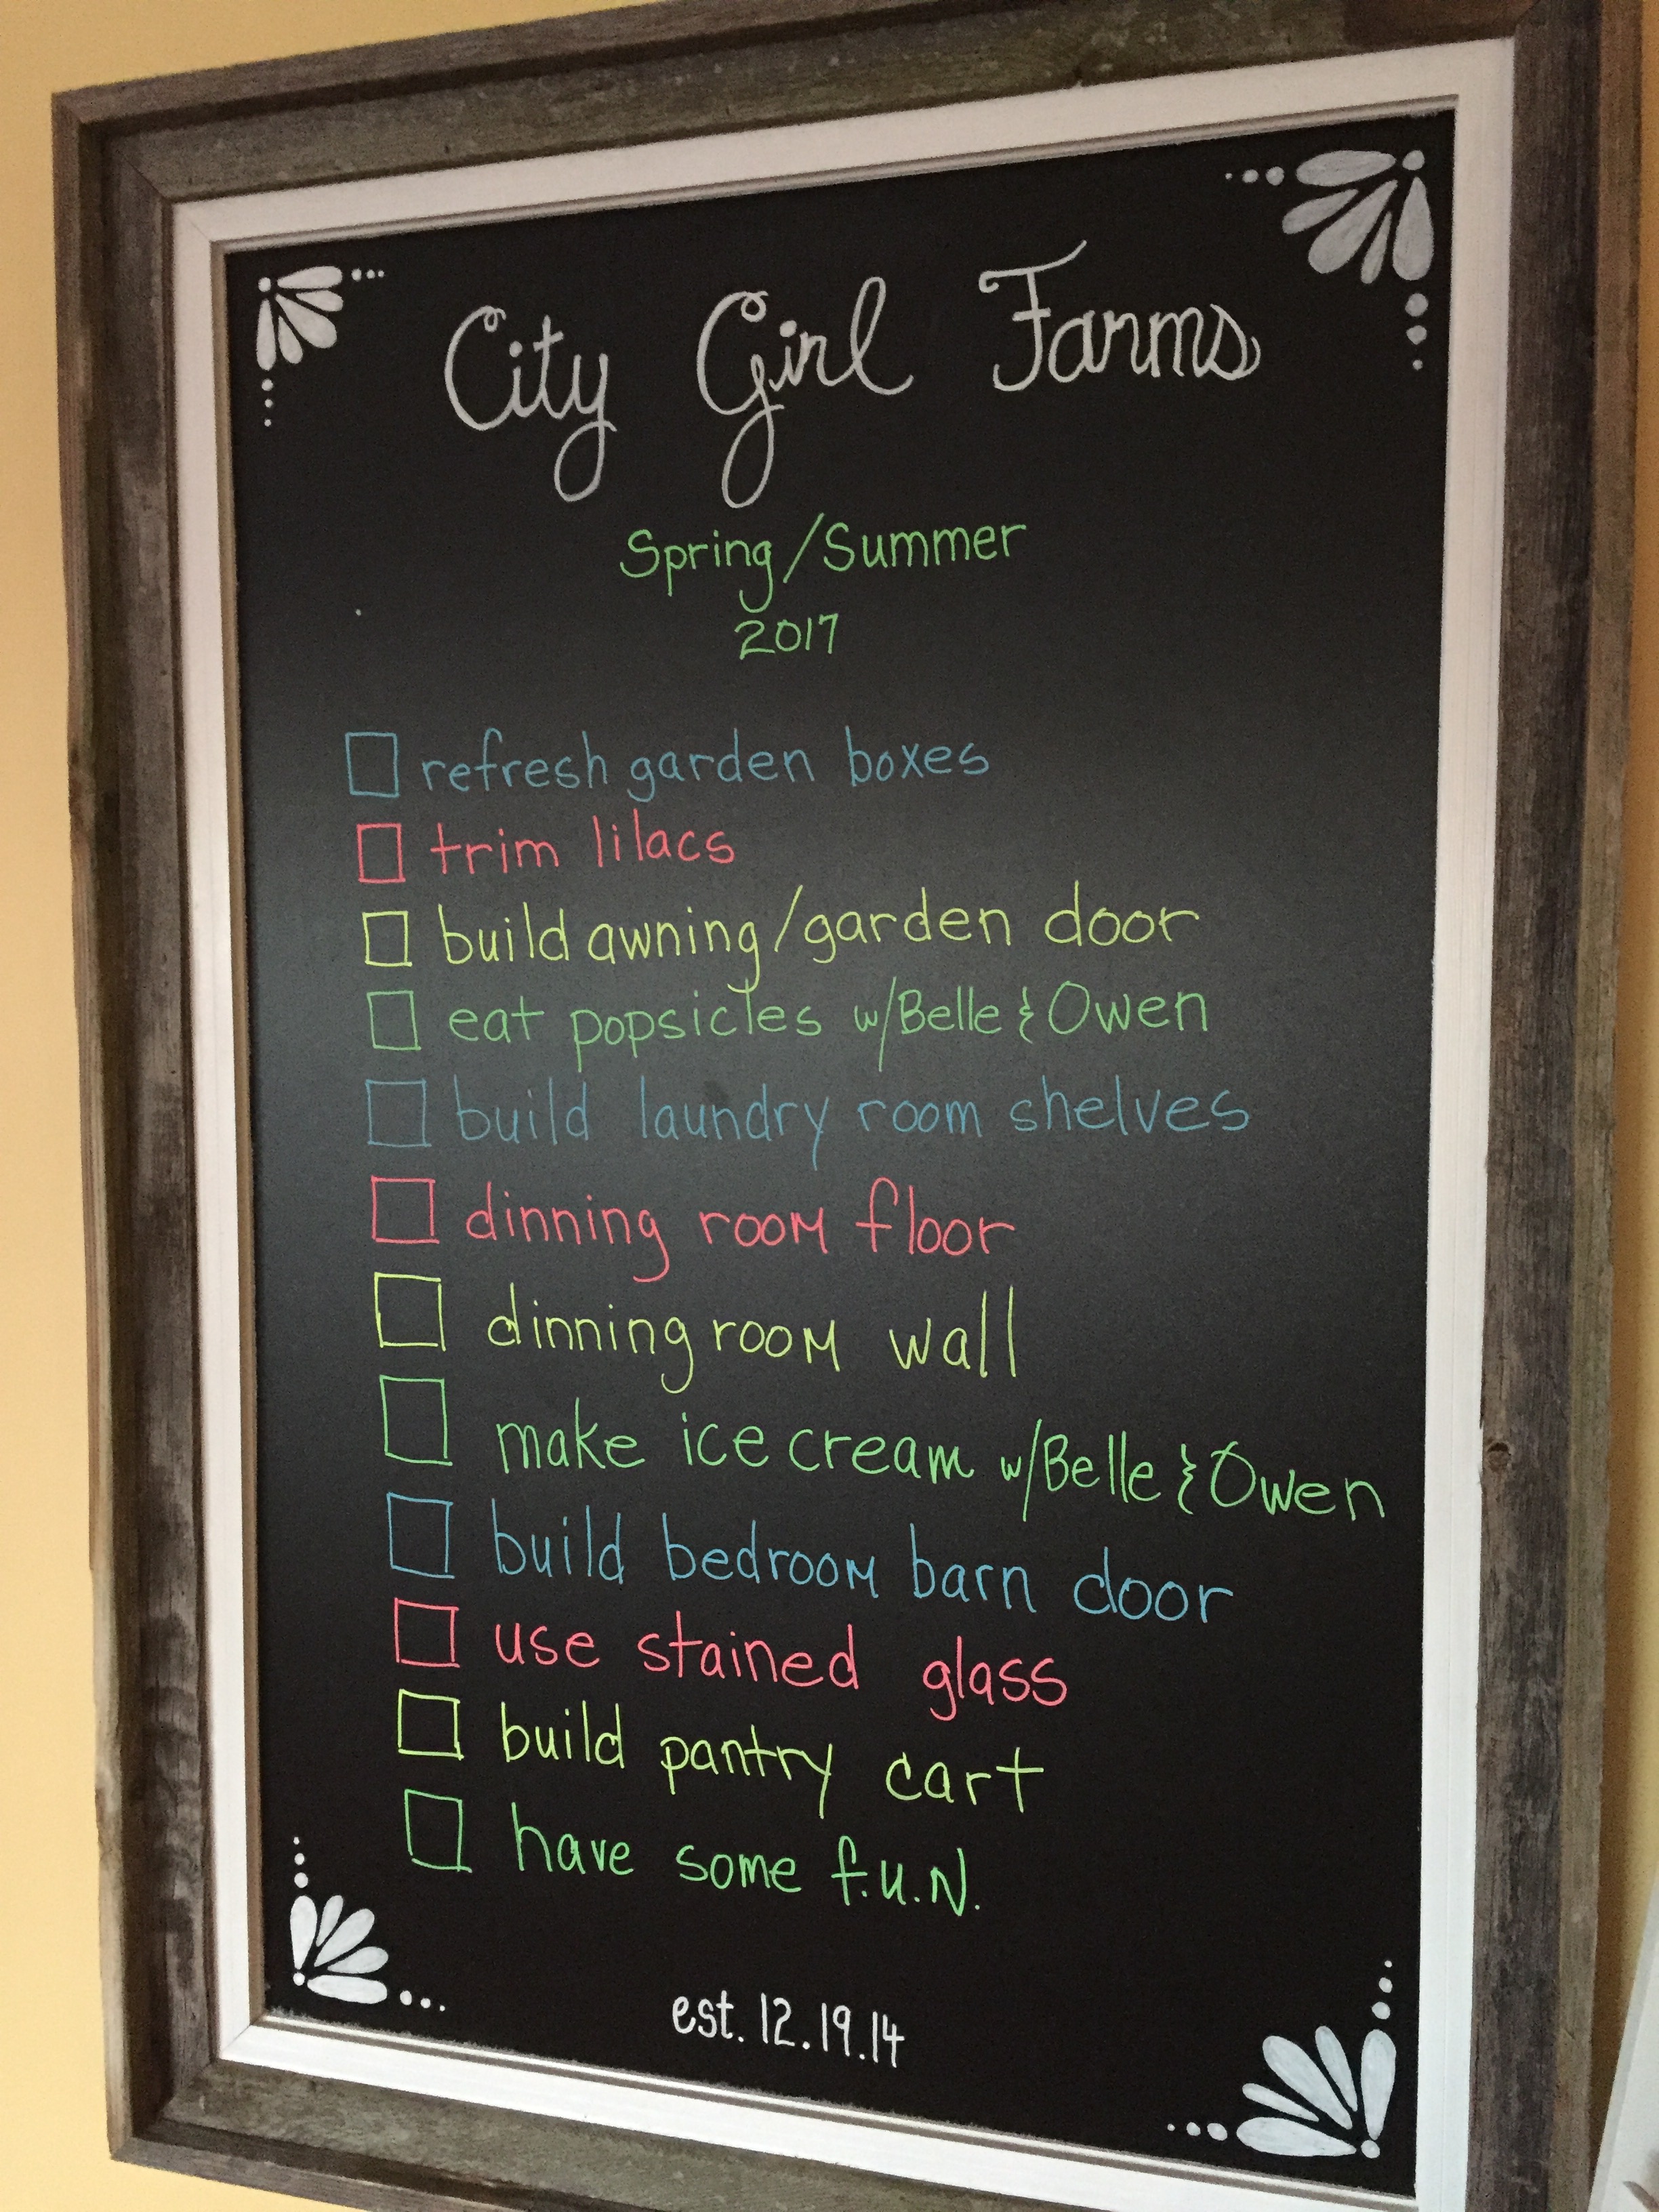 City Girl Farms
Spring/Summer
2017
refresh garden boxes
trim lilacs
build awning/garden door
eat popsicles w/Belle & Owen
build laundry room shelves
dinning room floor
dinning room wall
make ice cream w/Belle & Owen
build bedroom barn door
use stained glass
build pantry cart
have some f.u.N.
est. 12.19.14